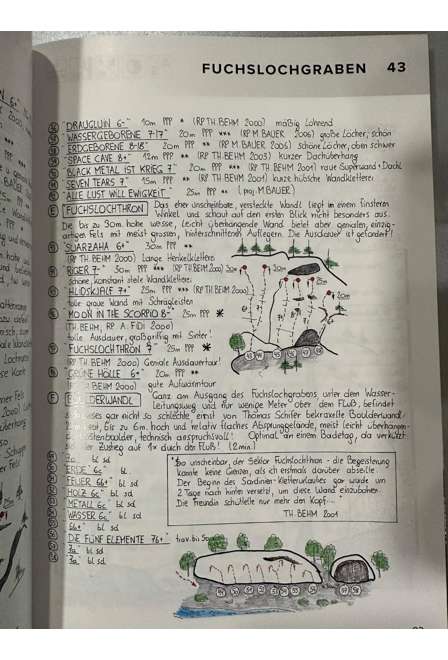 FUCHSLOCHGRABEN 43
"DRAUGLUIN 6-" 10m PPP * (RP TH.BEHM 2000) mäßig lohnend
"WASSERGEBORENE 7-17" 20m PPP *** (RP M.BAUER 2006) große Löcher, schön
"ERDGEBORENE 8-18" 20m PPP ** (RP M. BAUER 2006) schöne Löcher, oben schwer
"SPACE CAVE 8+" 12m PPP ** (RP TH.BEHM 2003) kurzer Dachüberhang
"BLACK METAL IST KRIEG 7" 20m PPP ** (RP TH.BEHM 2001) raue Superwand + Dachl
"SEVEN TEARS 7" 15m PPP ** (RP TH.BEHM 2001) kurze hübsche Wandkletterei
"ALLE LUST WILL EWIGKEIT" 25m PPP ** (proj. M.BAUER)
E FUCHSLOCHTHRON Das eher unscheinbare, versteckte Wandl liegt in einem finsteren
Winkel und schaut auf den ersten Blick nicht besonders aus.
Die bis zu 30m hohe weisse, leicht überhängende Wand bietet aber genialen, einzig-
artigen Fels mit meist grossen, hinterschnittenen Auflegern. Die Ausdauer ist gefordert!
"SUARZAHA 6+" 30m PPP **
(RP TH.BEHM 2000) lange Henkelkletterei
"RIGER 7-" 30m PPP *** (RP TH.BEHM 2000)
schöne, konstant steile Wandkletterei
"HLIDSKJALF 7+" 25m PPP ** (RP TH.BEHM 2000)
tolle graue Wand mit Schrägleisten
"MOON IN THE SCORPIO 8-" 25m PPP *
(TH.BEHM, RP A. FIDI 2000)
tolle Ausdauer, großgriffig mit Sinter!
"FUCHSLOCHTHRON 7" 25m PPP *
(RP TH.BEHM 2000) Geniale Ausdauertour!
"GRÜNE HÖLLE 6+" 20m PPP **
BEHM 2000) gute Aufwärmtour
F BOULDERWANDL Ganz am Ausgang des Fuchslochgrabens, unter dem Wasser-
Leitungsweg und nur wenige Meter ober dem Fluß, befindet
dieses gar nicht so schlechte, einst von Thomas Schifer bekraxelte Boulderwandl
2m breit, bis zu 6m hoch und relativ flaches Absprunggelände, meist leicht überhängen-
boulder, technisch anspruchsvoll! Optimal an einem Badetag, da verkürzt
cher Zustieg auf 1x durch den Fluß! (2min.)
7a bl sd
ERDE 6c" bl.
FEUER 6b+" bl sd
HOLZ 6c" bl sd
METALL 6c" bl sd
WASSER 6a" bl sd
6b+" bl sd
DIE FÜNF ELEMENTE 7b+" trav. bis
7a" bl sd
7a" bl sd
"So unscheinbar, der Sektor Fuchslochthron - die Begeisterung
kannte keine Grenzen, als ich erstmals darüber abseilte.
Der Beginn des Sardinien-Kletterurlaubes gar wurde um
2 Tage nach hinten versetzt, um diese Wand einzubohren.
Die Freundin schüttelte nur mehr den Kopf..."
TH.BEHM 2001